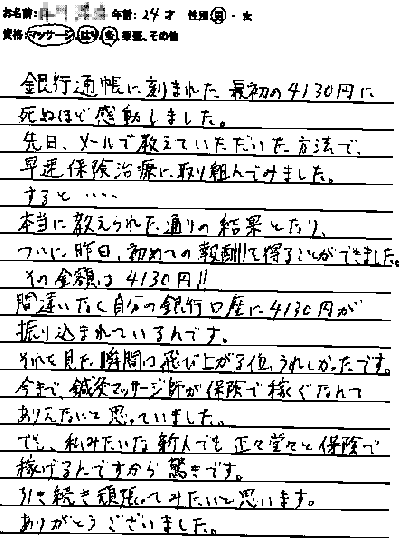 お名前: 年齢: 24 才 性別 男・女
資格: マッサージ、はり、灸、事務、その他
銀行通帳に刻まれた最初の4130円に
死ぬほど感動しました。
先日、メールで教えていただいた方法で、
早速保険治療に取り組んでみました。
すると・・・・
本当に教えられた通りの結果となり、
ついに昨日、初めての報酬!!を得ることができました。
その金額は4130円!!
間違いなく自分の銀行口座に4130円が
振り込まれているんです。
それを見た瞬間は飛び上がる位、うれしかったです。
今まで、鍼灸マッサージ師が保険で稼ぐなんて
ありえないと思っていました。
でも、私みたいな新人でも正々堂々と保険で
稼げるんですから驚きです。
引き続き頑張ってみたいと思います。
ありがとうございました。